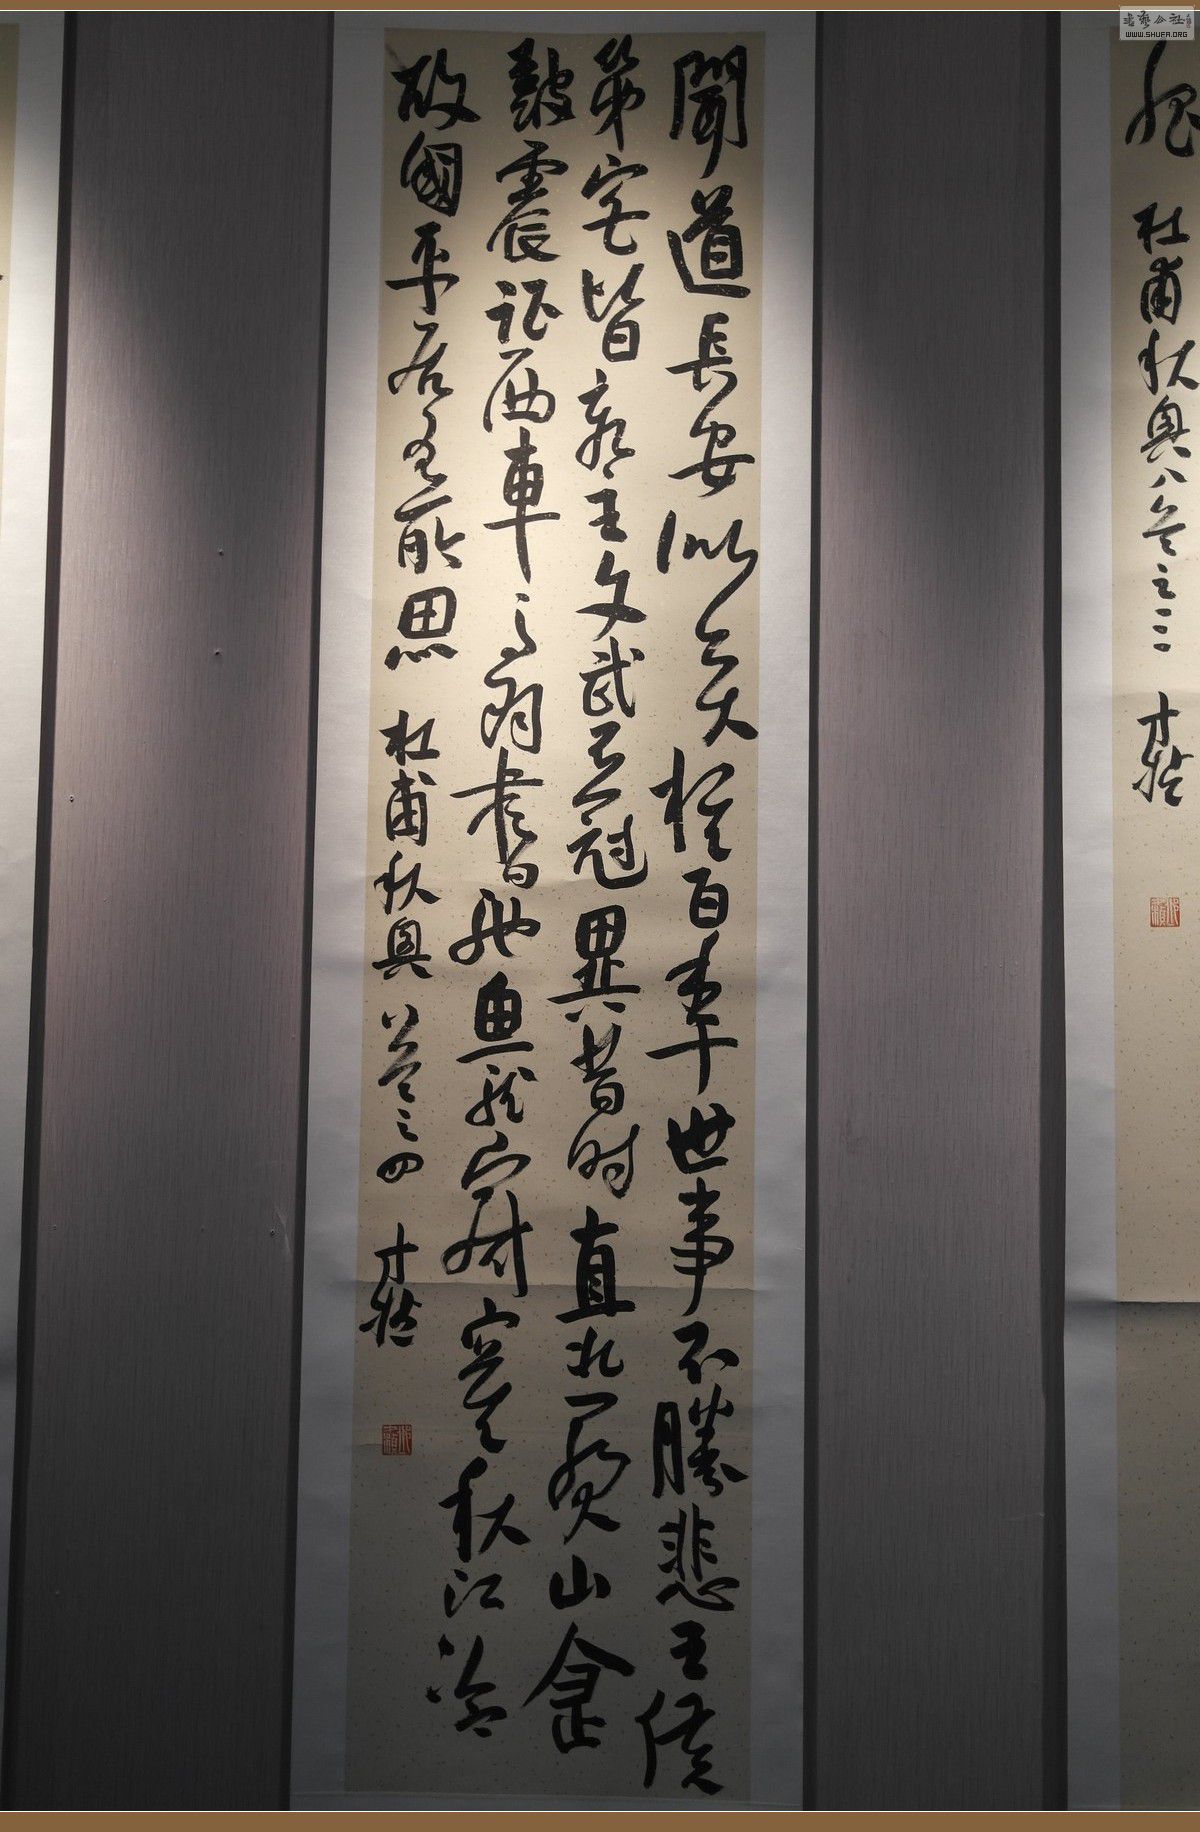 書藝公社
WWW.SHUFA.ORG
肥
杜甫秋興八首之三 才
聞道長安似奕棋百年世事不勝悲王侯
第宅皆新主文武衣冠異昔時直北關山金
皷震征西車馬羽書馳魚龍寂寞秋江冷
故國平居有所思 杜甫秋興八首之四 才